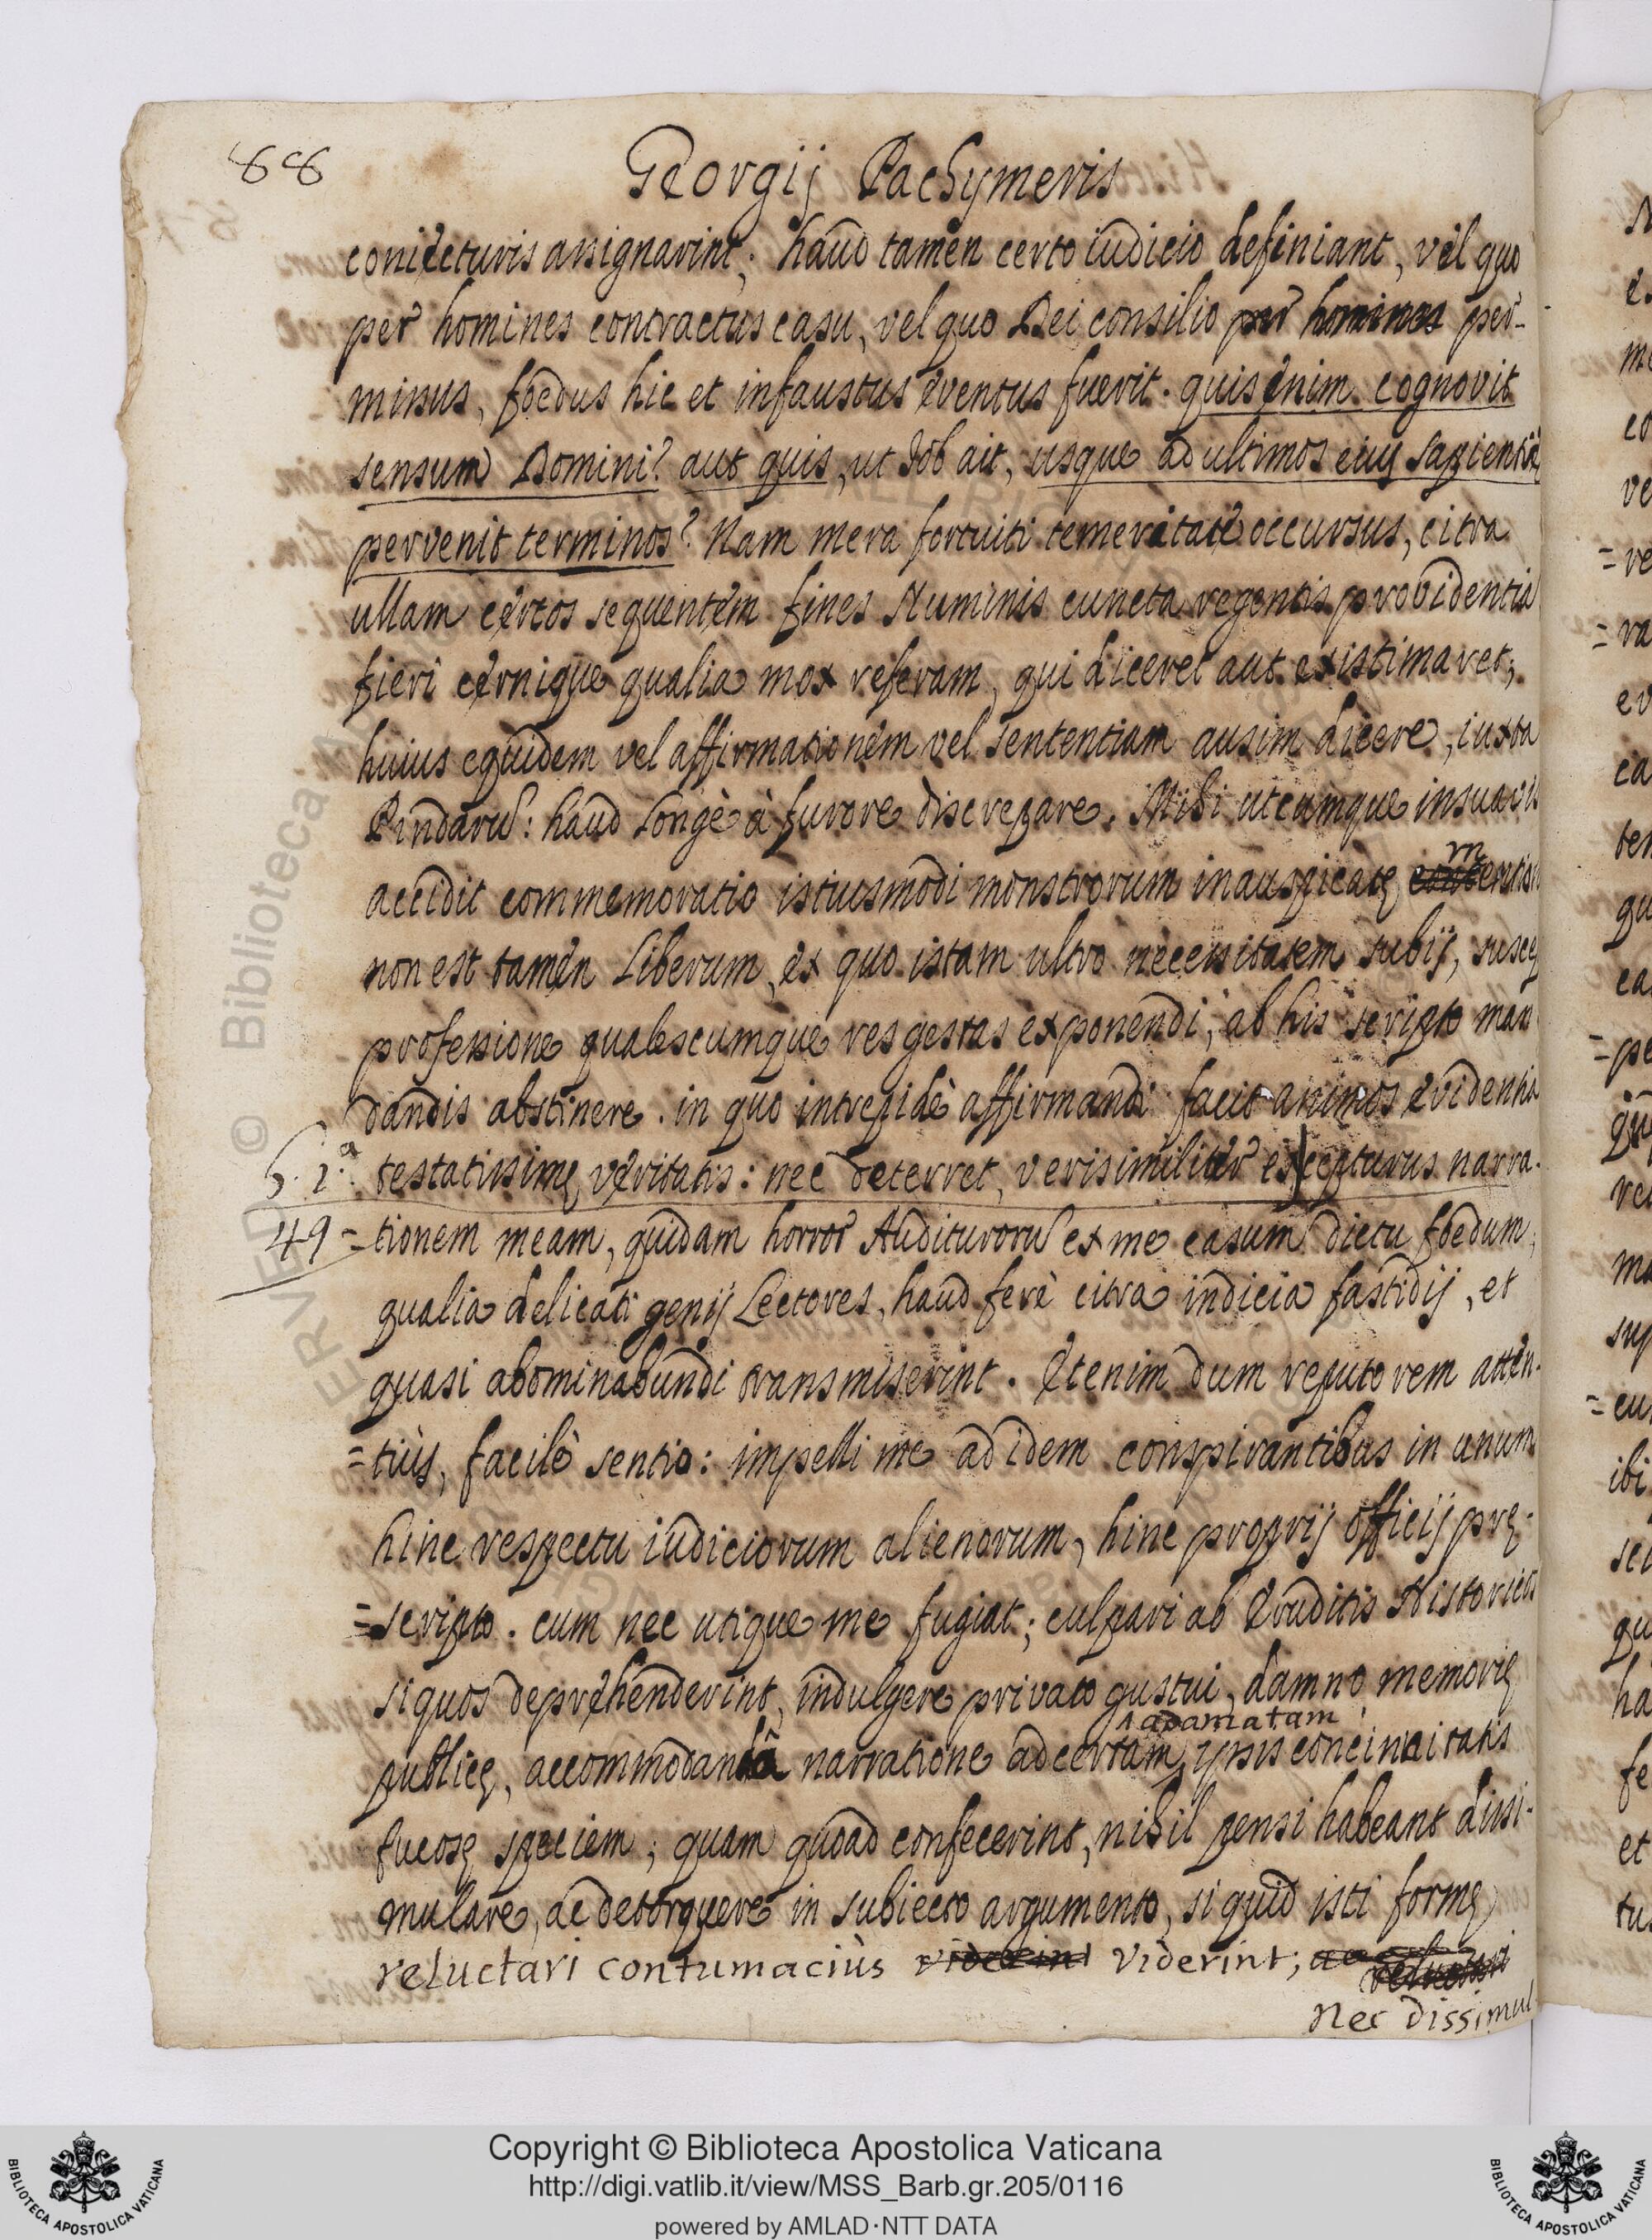 88
Georgij Pachymeris
coniecturis assignarint; haud tamen certo iudicio definiant, vel quo
per homines contractus casu, vel quo Dei consilio per homines per-
missus, foedus hic et infaustus eventus fuerit. quis enim cognovit
sensum Domini? aut quis, ut Iob ait, usque ad ultimos eius sapientię
pervenit terminos? Nam mera fortuiti temeritate occursus, citra
ullam certos sequentem fines Numinis cuncta regentis providentia
fieri cernique qualia mox referam, qui diceret aut existimaret;
huius equidem vel affirmationem vel sententiam ausim dicere, iuxta
Pindarū: haud longè à furore discrepare. Mihi utcumque insuavis
accidit commemoratio istiusmodi monstrorum inauspicatę
m
non est tamen liberum, ex quo istam ultro necessitatem subij, suscep
professione qualescumque res gestas exponendi, ab his scripto man
dandis abstinere. in quo intrepidè affirmandi facit animos evidentia
§. 1.ª testatissimę veritatis: nec deterret, verisimiliter excepturus narra-
49 =tionem meam, quidam horror Auditurorū ex me casum dictu foedum,
qualia delicati genij Lectores, haud ferè citra indicia fastidij, et
quasi abominabundi transmiserint. Etenim dum reputo rem atten-
=tiùs, facilè sentio: impelli me ad idem conspirantibus in unum
hinc respectu iudiciorum alienorum, hinc proprij officij prę-
=scripto. cum nec utique me fugiat; culpari ab Eruditis Historicos
siquos deprehenderint, indulgere privato gustui, damno memorię
publicę, accommodandâ narratione ad certam ipsis concinnitatis
^ adamatam
fucosę speciem; quam quoad confecerint, nihil pensi habeant dissi-
mulare, ac detorquere in subiecto argumento, si quid isti formę
reluctari contumaciùs viderint viderint;
Nec dissimul
Copyright © Biblioteca Apostolica Vaticana
http://digi.vatlib.it/view/MSS_Barb.gr.205/0116
powered by AMLAD·NTT DATA
BIBLIOTECA APOSTOLICA VATICANA
BIBLIOTECA APOSTOLICA VATICANA